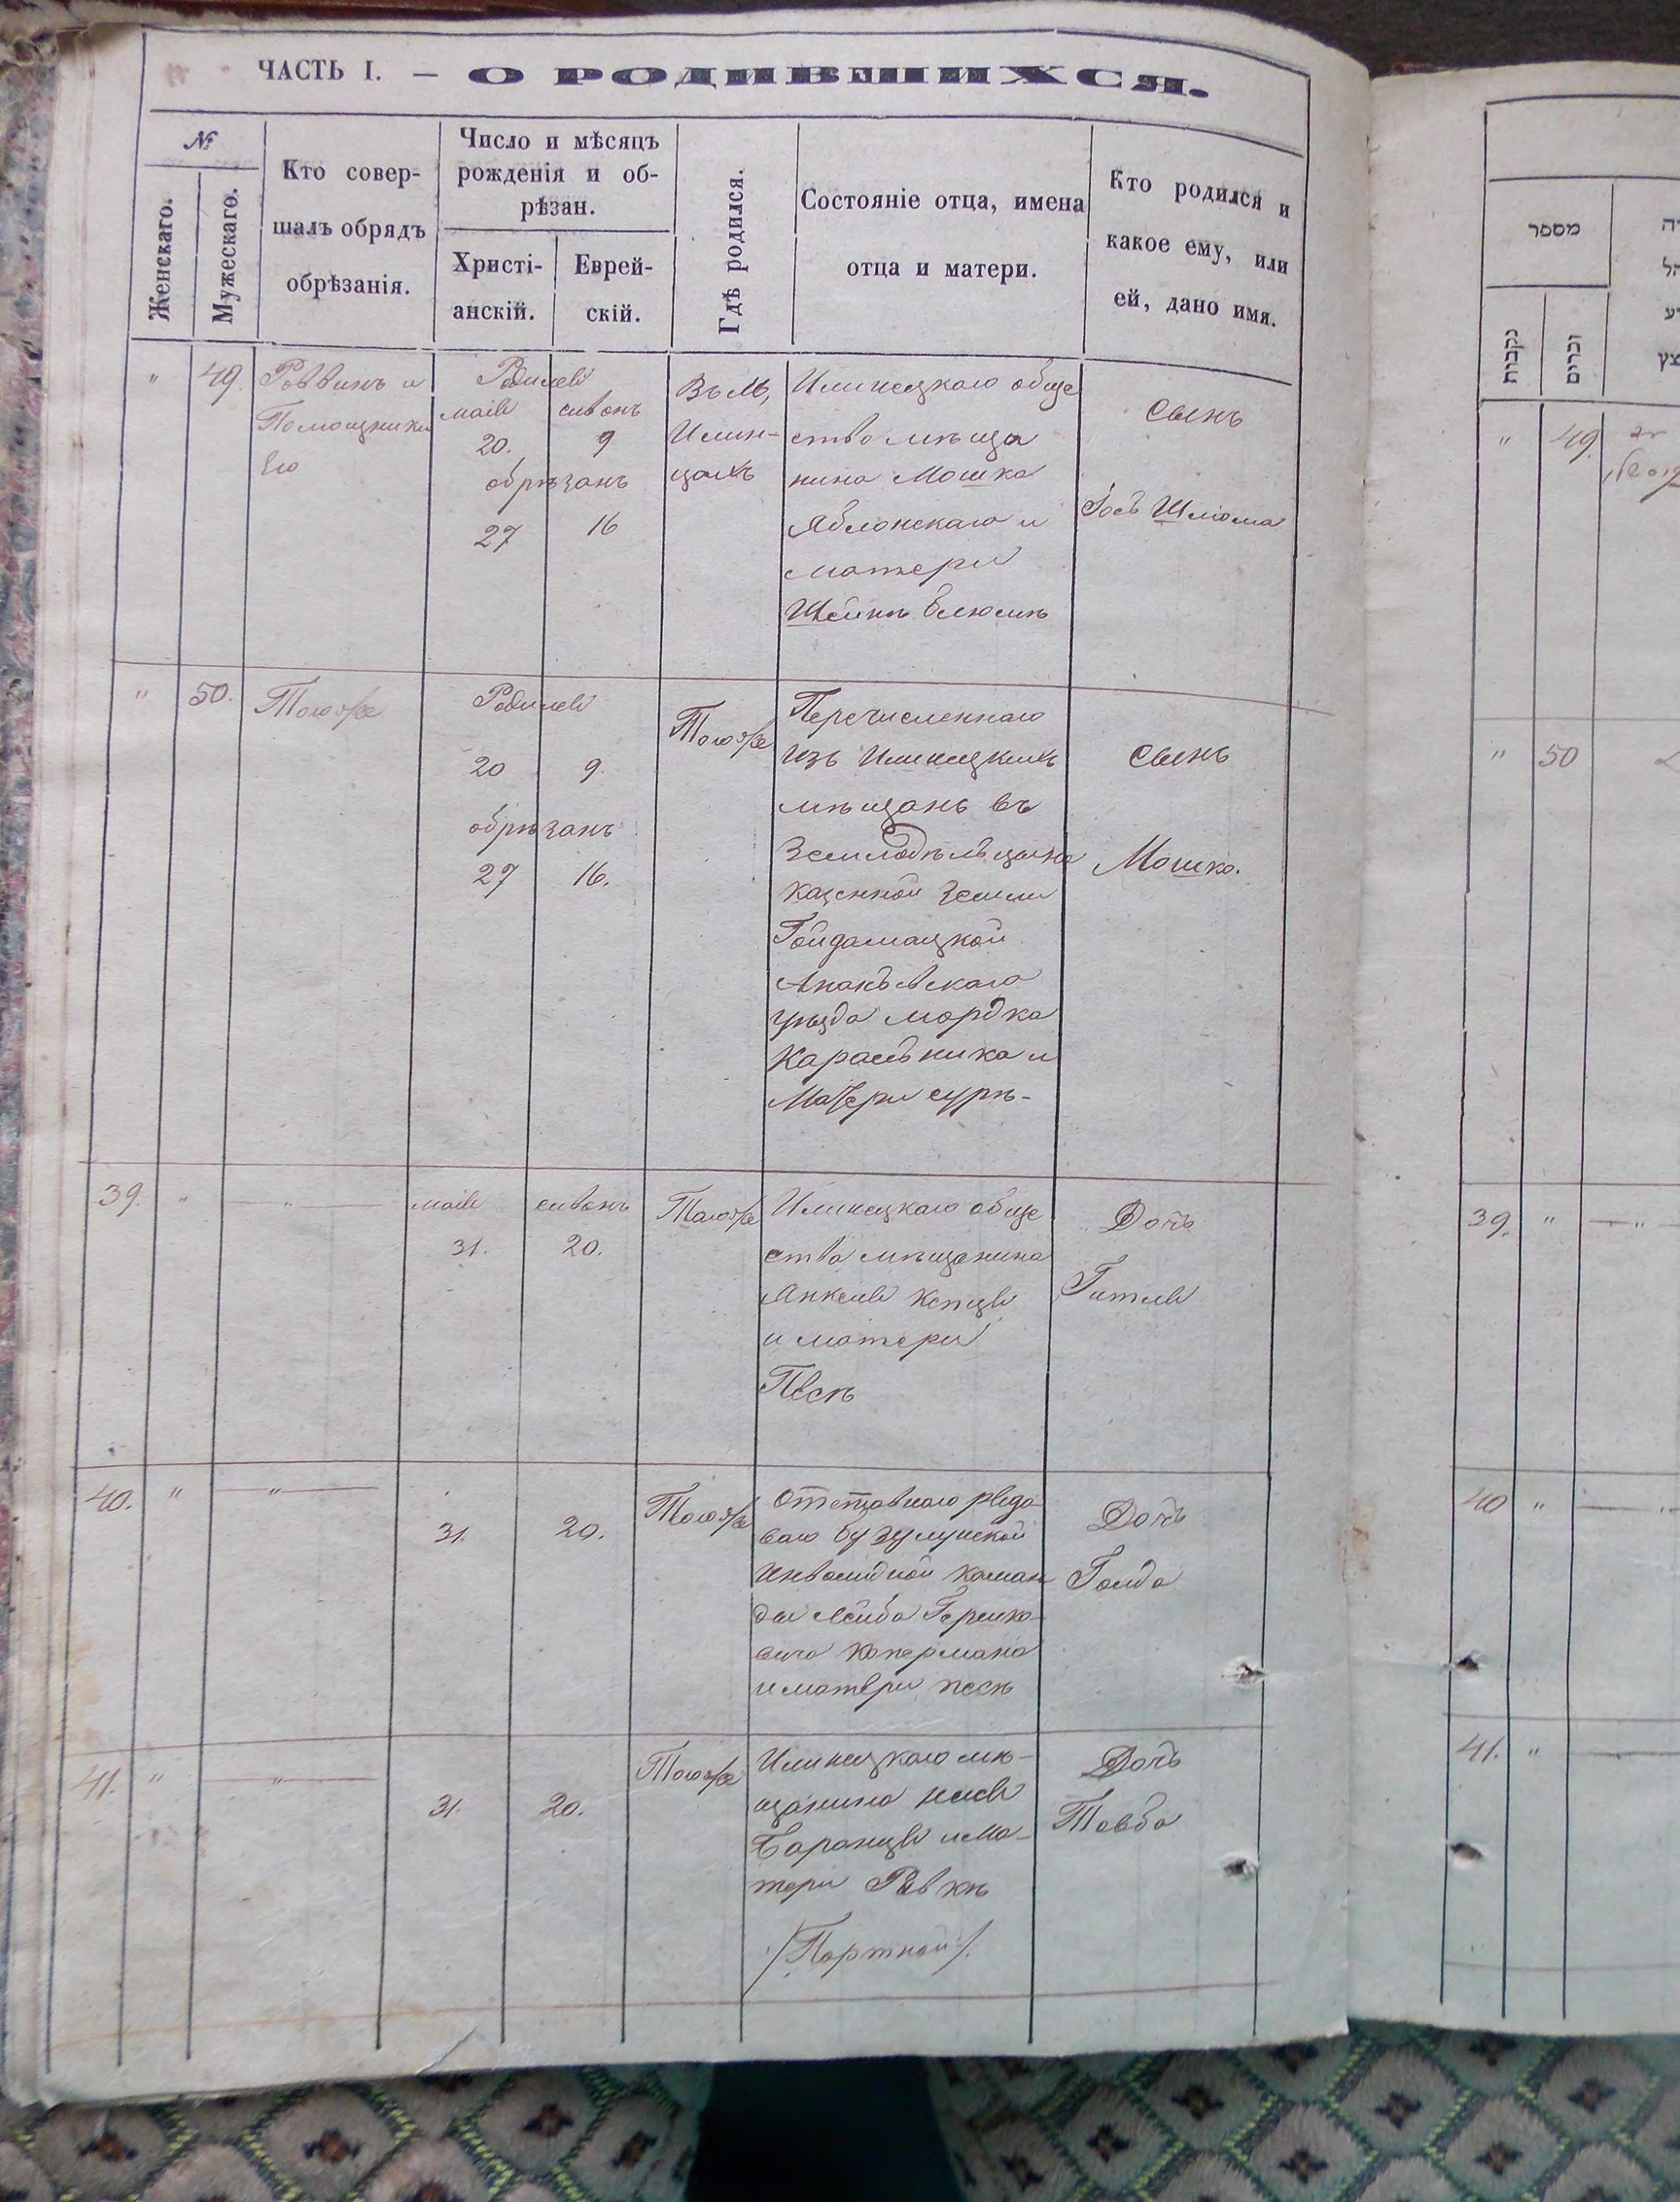 ЧАСТЬ I. — О РОДИВШИХСЯ.
№
Женскаго.
Мужескаго.
Кто совер-
шалъ обрядъ
обрѣзанія.
Число и мѣсяцъ
рожденія и об-
рѣзан.
Христі-
анскій.
Еврей-
скій.
Гдѣ родился.
Состояніе отца, имена
отца и матери.
Кто родился и
какое ему, или
ей, дано имя.
" 49.
Раввинъ и
Помощники
Его
Родился
маія сивонъ
20. 9
обрѣзанъ
27 16
Въ М,
Илин-
цахъ
Илинецкаго обще
ства мѣща
нина Мошка
Яблонскаго и
матери
Шейнѣ Блюмѣ
Сынъ
Шлиома
" 50.
Тогоже
Родился
20 9.
обрѣзанъ
27 16.
Тогоже
Перечисленнаго
изъ Илинецкихъ
мѣщанъ въ
казенной земли
Гайдамацкой
Ананьевскаго
уѣзда Мордка
и
Матери сурѣ-
Сынъ
Мошко.
39. " "
маія сивонъ
31. 20.
Тогоже
Илинецкаго обще
ства мѣщанина
Янкеля
и матери
Песѣ
Дочь
Гитля
40. " "
31. 20.
Тогоже
Отставнаго рядо
ваго бузулуцкой
Инвалидной коман
ды Лейба Гершко
вича Копермана
и матери песѣ
Дочь
Голда
41. " "
31. 20.
Тогоже
Илинецкаго мѣ-
щанина
и Ма-
тери Ривкѣ
/Портной/.
Дочь
Товба
מספר
נקבות
זכרים
" 49.
" 50
39. " "
40 "
41. "